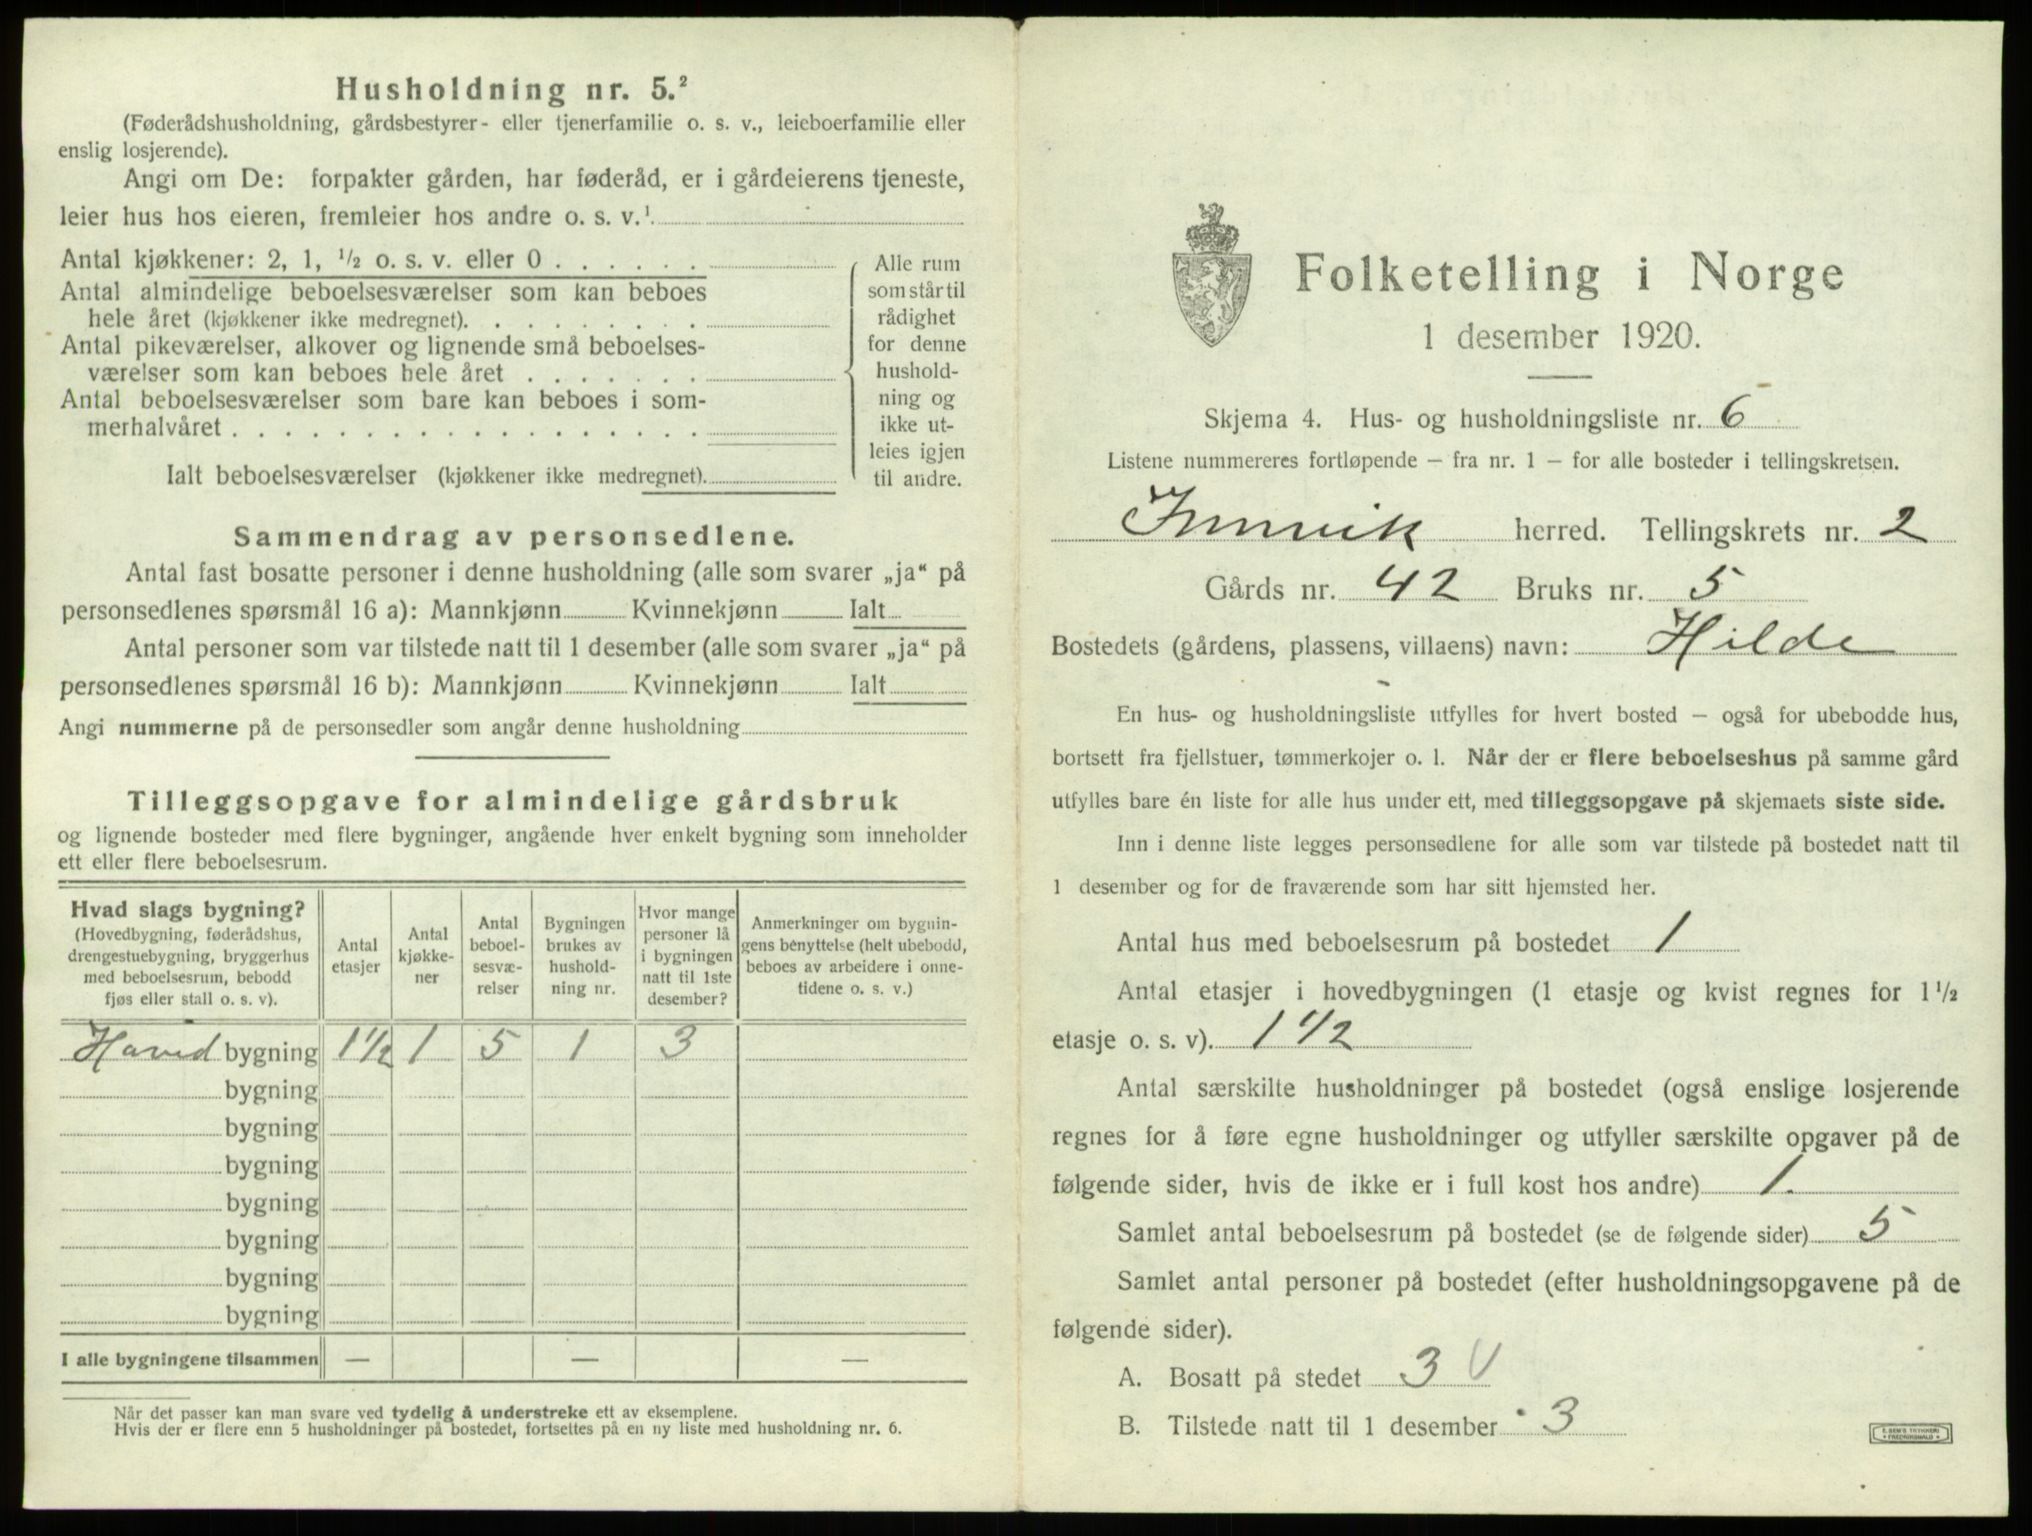 Husholdning nr. 5.²
(Føderådshusholdning, gårdsbestyrer- eller tjenerfamilie o. s. v., leieboerfamilie eller
enslig losjerende).
Angi om De: forpakter gården, har føderåd, er i gårdeierens tjeneste,
leier hus hos eieren, fremleier hos andre o. s. v.¹
Antal kjøkkener: 2, 1, ½ o. s. v. eller 0 . . . . . .
Antal almindelige beboelsesværelser som kan beboes
hele året (kjøkkener ikke medregnet). . . . . . . . .
Antal pikeværelser, alkover og lignende små beboelses-
værelser som kan beboes hele året . . . . . . .
Antal beboelsesværelser som bare kan beboes i som-
merhalvåret . . . . . . . . . . . . . . . . . .
Ialt beboelsesværelser (kjøkkener ikke medregnet).
Alle rum
som står til
rådighet
for denne
hushold-
ning og
ikke ut-
leies igjen
til andre.
Sammendrag av personsedlene.
Antal fast bosatte personer i denne husholdning (alle som svarer „ja“ på
personsedlenes spørsmål 16 a): Mannkjønn Kvinnekjønn Ialt
Antal personer som var tilstede natt til 1 desember (alle som svarer „ja“ på
personsedlenes spørsmål 16 b): Mannkjønn Kvinnekjønn Ialt
Angi nummerne på de personsedler som angår denne husholdning
Tilleggsopgave for almindelige gårdsbruk
og lignende bosteder med flere bygninger, angående hver enkelt bygning som inneholder
ett eller flere beboelsesrum.
Hvad slags bygning?
(Hovedbygning, føderådshus,
drengestuebygning, bryggerhus
med beboelsesrum, bebodd
fjøs eller stall o. s. v).
Antal
etasjer
Antal
kjøkke-
ner
Antal
beboel-
sesvæ-
relser
Bygningen
brukes av
hushold-
ning nr.
Hvor mange
personer lå
i bygningen
natt til 1ste
desember?
Anmerkninger om bygnin-
gens benyttelse (helt ubebodd,
beboes av arbeidere i onne-
tidene o. s. v.)
Hoved bygning 1½ 1 5 1 3
bygning
bygning
bygning
bygning
bygning
bygning
bygning
I alle bygningene tilsammen — — —
Når det passer kan man svare ved tydelig å understreke ett av eksemplene.
Hvis der er flere enn 5 husholdninger på bostedet, fortsettes på en ny liste med husholdning nr. 6.
Folketelling i Norge
1 desember 1920.
Skjema 4. Hus- og husholdningsliste nr. 6
Listene nummereres fortløpende – fra nr. 1 – for alle bosteder i tellingskretsen.
Innvik herred. Tellingskrets nr. 2
Gårds nr. 42 Bruks nr. 5
Bostedets (gårdens, plassens, villaens) navn: Hilde
En hus- og husholdningsliste utfylles for hvert bosted – også for ubebodde hus,
bortsett fra fjellstuer, tømmerkojer o. l. Når der er flere beboelseshus på samme gård
utfylles bare én liste for alle hus under ett, med tilleggsopgave på skjemaets siste side.
Inn i denne liste legges personsedlene for alle som var tilstede på bostedet natt til
1 desember og for de fraværende som har sitt hjemsted her.
Antal hus med beboelsesrum på bostedet 1
Antal etasjer i hovedbygningen (1 etasje og kvist regnes for 1½
etasje o. s. v). 1½
Antal særskilte husholdninger på bostedet (også enslige losjerende
regnes for å føre egne husholdninger og utfyller særskilte opgaver på de
følgende sider, hvis de ikke er i full kost hos andre) 1.
Samlet antal beboelsesrum på bostedet (se de følgende sider) 5
Samlet antal personer på bostedet (efter husholdningsopgavene på de
følgende sider).
A. Bosatt på stedet 3 V
B. Tilstede natt til 1 desember 3
E. SEM'S TRYKKERI
FREDRIKSHALD